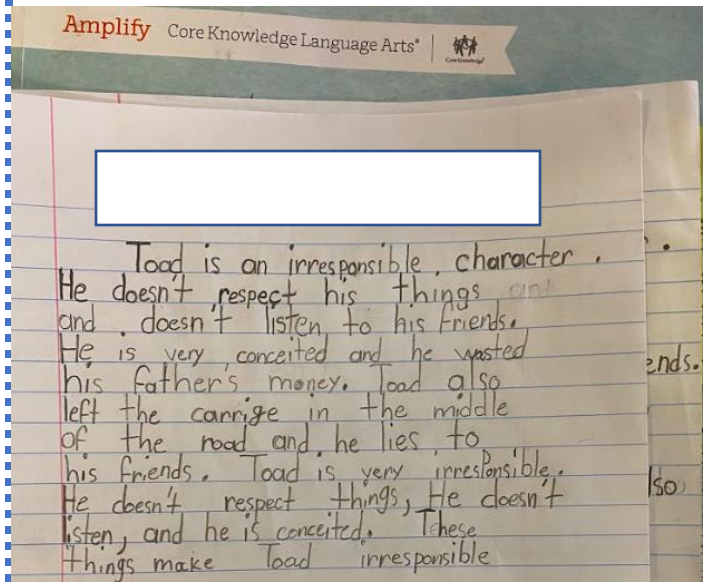 Amplify Core Knowledge Language Arts®
CoreKnowledge®
Toad is an irresponsible, character.
He doesn't respect his things and
and doesn't listen to his friends.
He is very conceited and he wasted
his father's money. Toad also
left the carrige in the middle
of the road and he lies to
his friends. Toad is very irresponsible.
He doesn't respect things, He doesn't
listen, and he is conceited. These
things make Toad irresponsible
ends.
lso